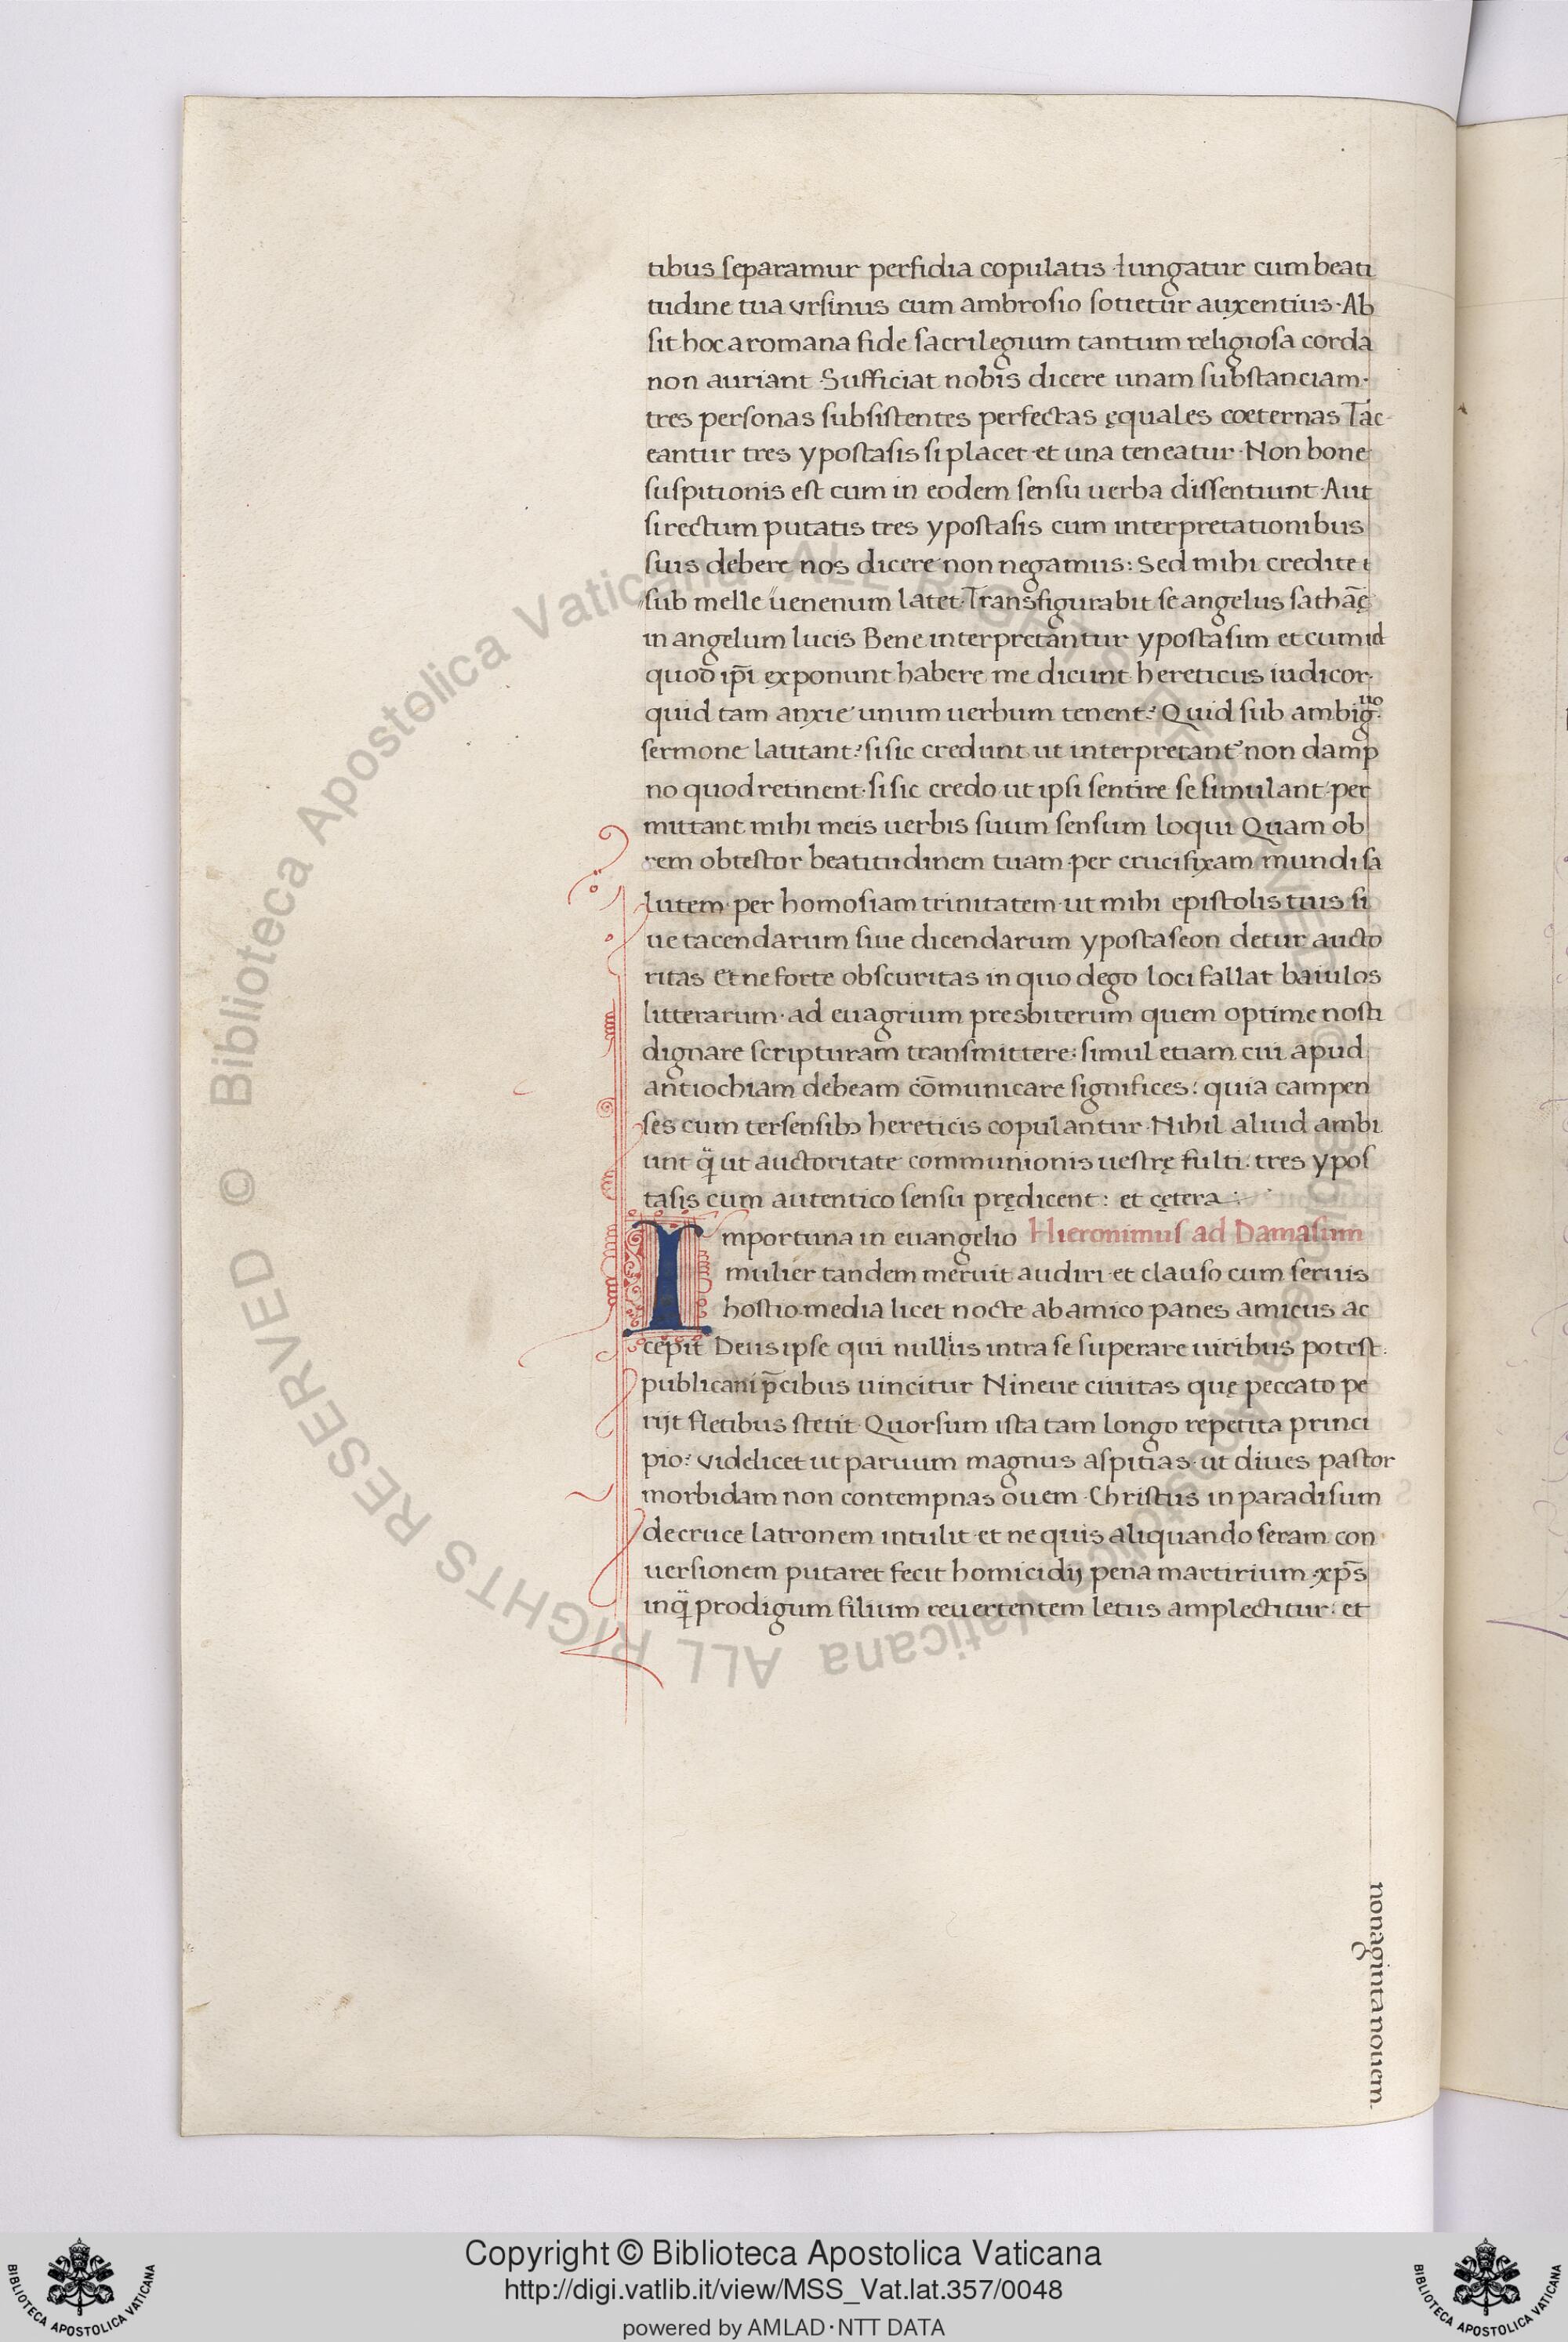 tibus ſeparamur perfidia copulatis · Iungatur cum beati
tudine tua vrſinus cum ambroſio ſotietur auxentius · Ab
ſit hoc a romana fide ſacrilegium tantum religioſa corda
non auriant · Sufficiat nobis dicere unam ſubſtanciam ·
tres perſonas ſubſiſtentes perfectas ęquales coeternas Tac
eantur tres ypoſtaſis ſi placet et una teneatur · Non bone
ſuſpitionis eſt cum in eodem ſenſu uerba diſſentiunt · Aut
ſi rectum putatis tres ypoſtaſis cum interpretationibus
ſuis debere nos dicere non negamus: Sed mihi credite
ſub melle uenenum latet · Transfigurabit ſe angelus ſathāę
in angelum lucis Bene interpretantur ypoſtaſim et cum id
quod ip̄i exponunt habere me dicunt hereticus iudicor ·
quid tam anxie unum uerbum tenent? Quid ſub ambiguo
ſermone latitant? ſi ſic credunt ut interpretant᷑ non damp
no quod retinent · ſi ſic credo ut ipſi ſentire ſe ſimulant per
mittant mihi meis uerbis ſuum ſenſum loqui Quam ob
rem obteſtor beatitudinem tuam per crucifixam mundi ſa
lutem · per homoſiam trinitatem · ut mihi epiſtolis tuis ſi
ue tacendarum ſiue dicendarum ypoſtaſeon detur aucto
ritas Et ne forte obſcuritas in quo dego loci fallat baiulos
litterarum · ad euagrium presbiterum quem optime noſti
dignare ſcripturam tranſmittere: ſimul etiam cui apud
antiochiam debeam cōmunicare ſignifices: quia campen
ſes cum terſenſibꝫ hereticis copulantur · Nihil aliud ambi
unt q̈ ut auctoritate communionis ueſtrę fulti: tres ypoſ
taſis cum autentico ſenſu prędicent: et cętera
Importuna in euangelio Hieronimuſ ad Damaſum
mulier tandem meruit audiri · et clauſo cum ſeruis
hoſtio media licet nocte ab amico panes amicus ac
cepit Deus ipſe qui nullius intra ſe ſuperare uiribus poteſt:
publicani p̄cibus uincitur Nineue ciuitas quę peccato pe
rijt fletibus ſtetit · Quorſum iſta tam longo repetita princi
pio? videlicet ut paruum magnus aſpitias · ut diues paſtor
morbidam non contempnas ouem · Chriſtus in paradiſum
de cruce latronem intulit · et ne quis aliquando ſeram con
uerſionem putaret fecit homicidij pena martirium · xp̄s
inq̈ prodigum filium reuertentem letus amplectitur: et
nonaginta nouem.
© Biblioteca Apostolica Vaticana ALL RIGHTS RESERVED
© Biblioteca Apostolica Vaticana ALL RIGHTS RESERVED
Copyright © Biblioteca Apostolica Vaticana
http://digi.vatlib.it/view/MSS_Vat.lat.357/0048
powered by AMLAD·NTT DATA
BIBLIOTECA APOSTOLICA VATICANA
BIBLIOTECA APOSTOLICA VATICANA